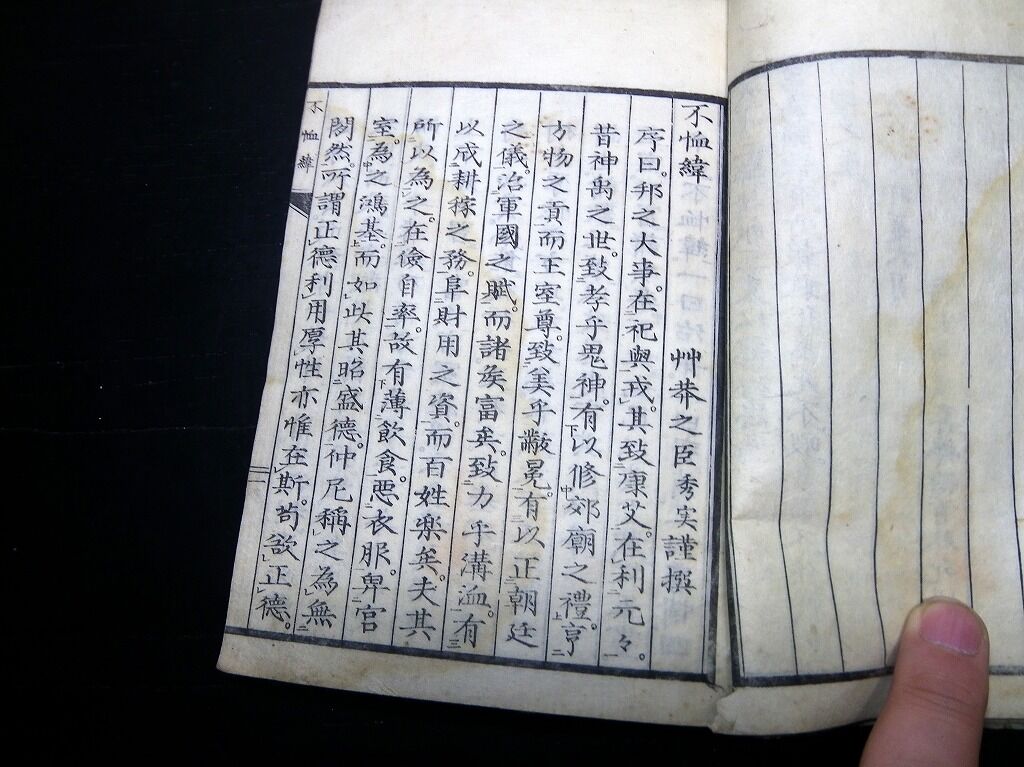 不恤緯
艸莽之臣秀実謹撰
序曰。邦之大事。在祀與戎。其致康艾。在利元々。
昔神禹之世。致孝乎鬼神。有以修郊廟之禮。亨
方物之貢。而王室尊。致美乎黻冕。有以正朝廷
之儀。治軍國之賦。而諸矦富矣。致力乎溝洫。有
以成耕稼之務。阜財用之資。而百姓楽矣。夫其
所以為之。在儉自率。故有薄飲食。悪衣服。卑宮
室。為之鴻基。而如此其昭盛德。仲尼稱之為無
閒然。所謂正德利用厚性亦惟在斯。苟欲正德。
不恤緯